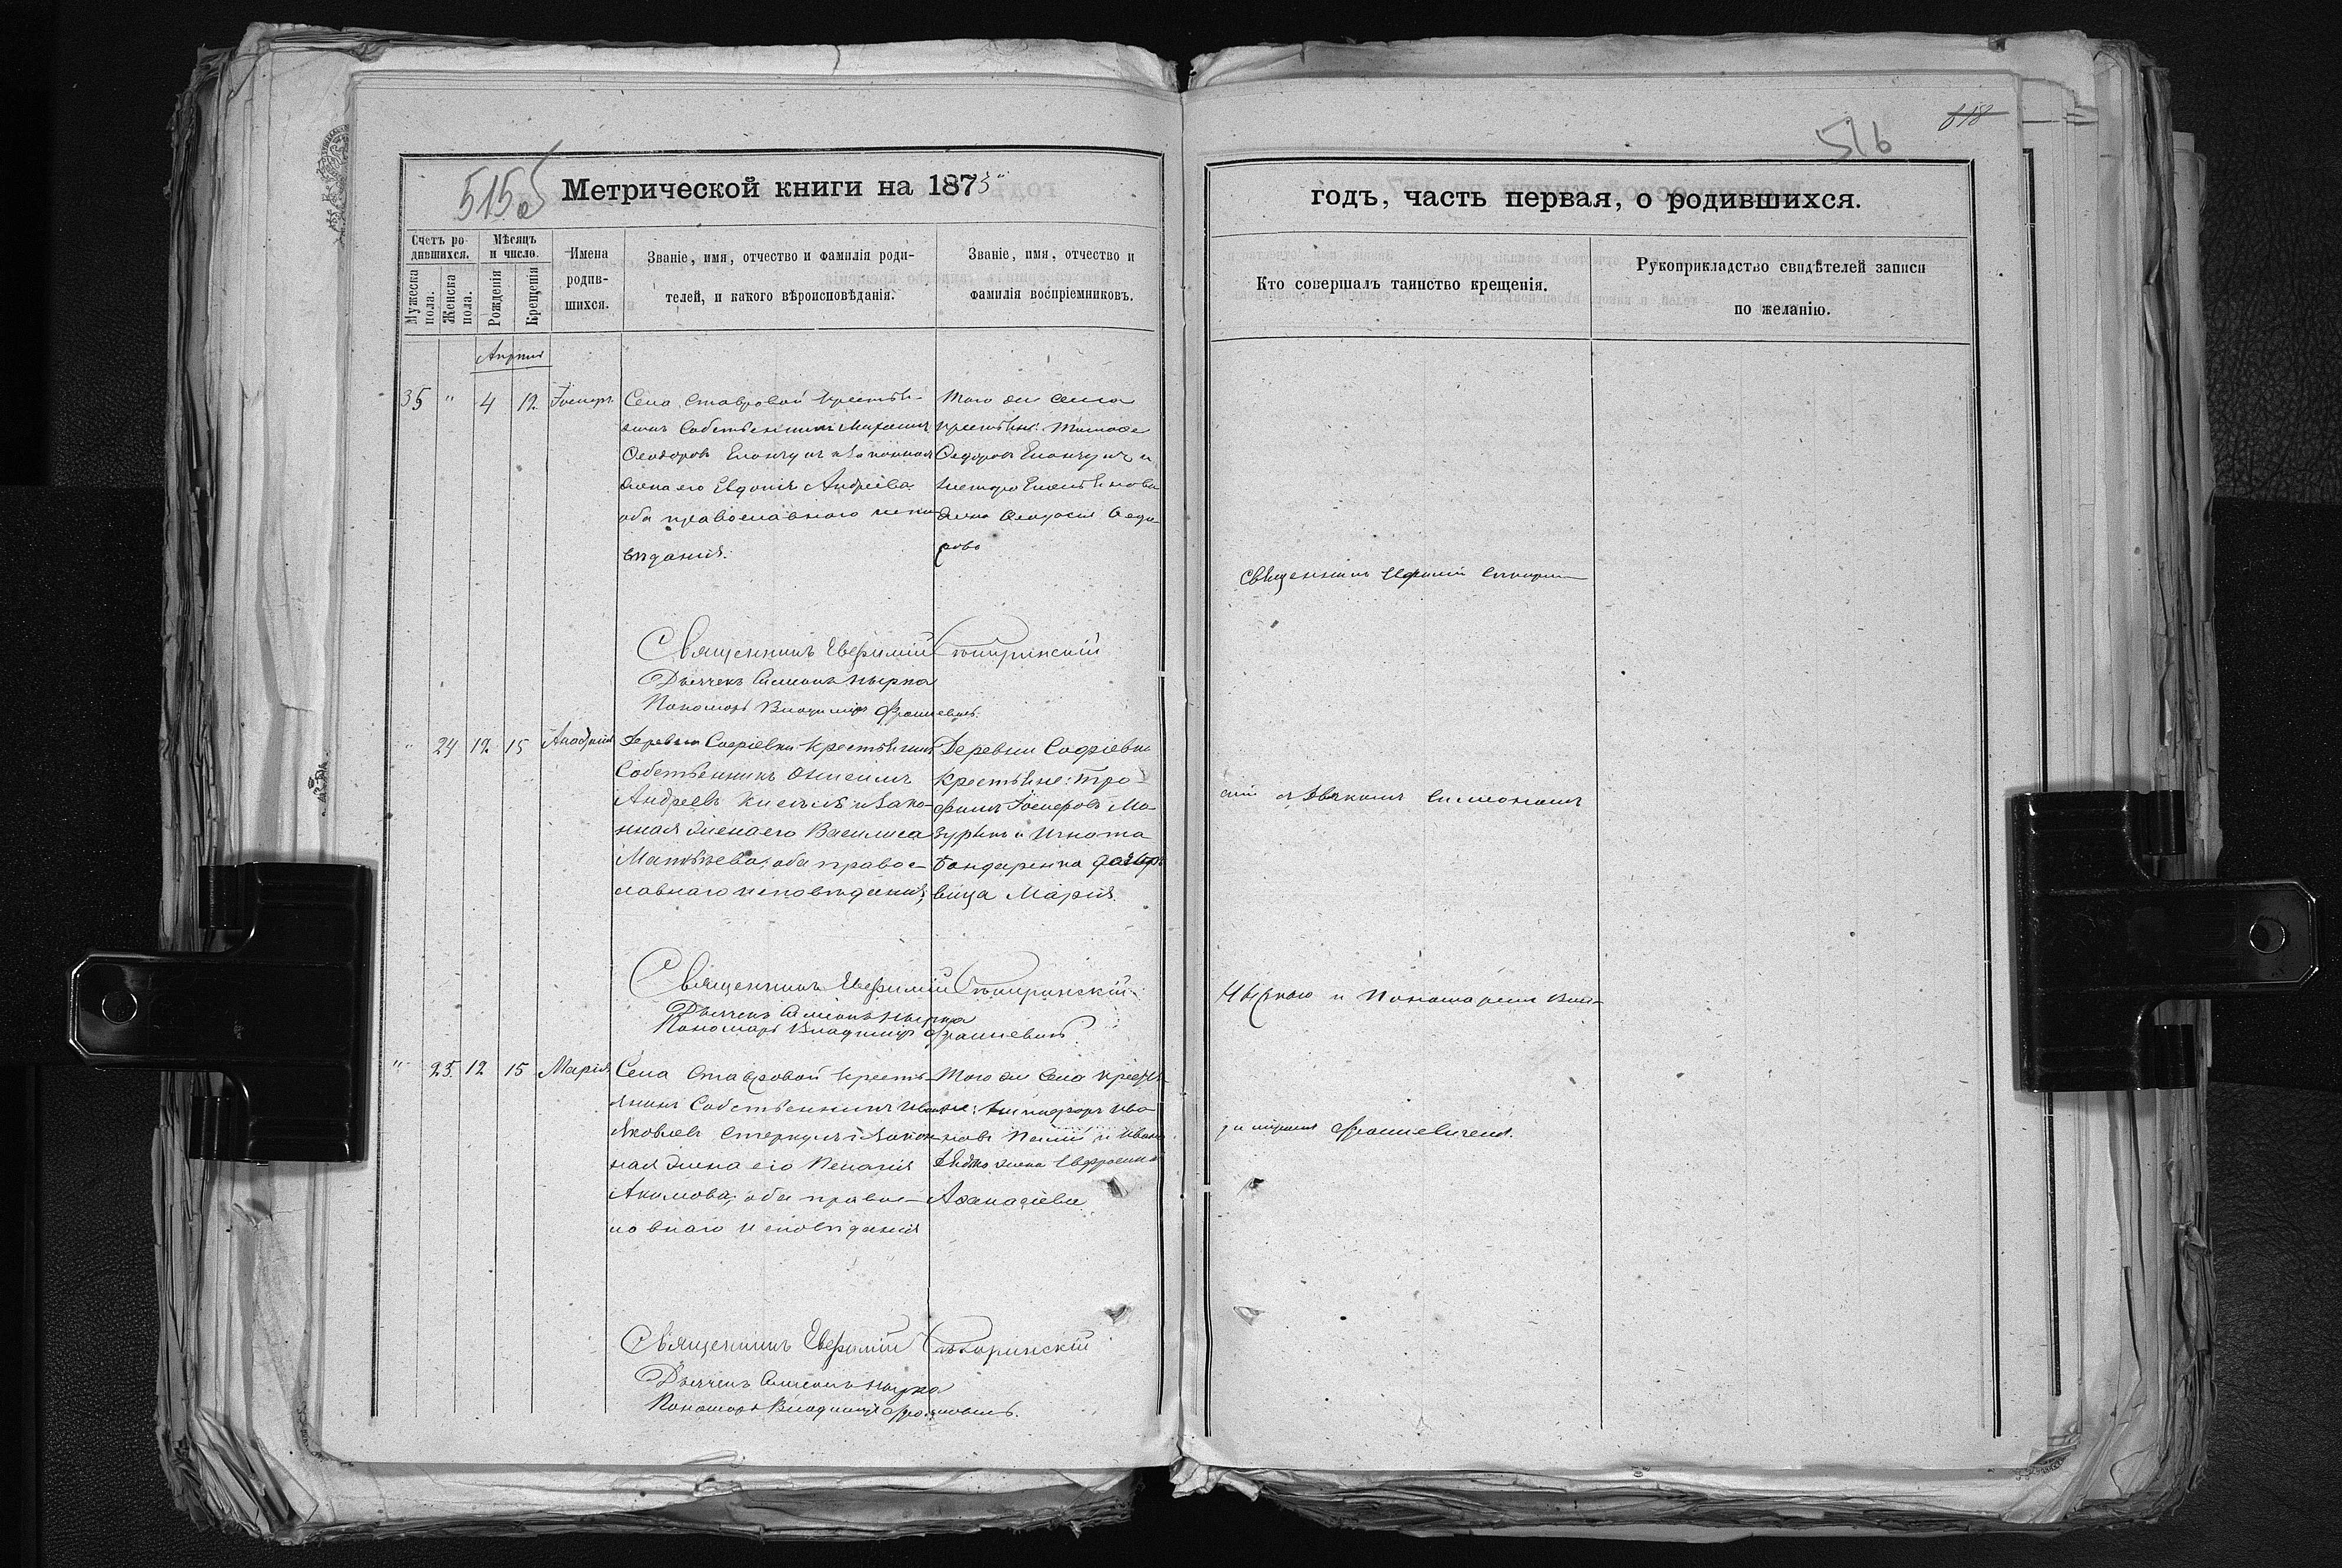 515об
Метрической книги на 1873й
Счетъ ро-
дившихся.
Мужеска пола.
Женска пола.
Мѣсяцъ
и число.
Рожденія
Крещенія
Имена
родив-
шихся.
Званіе, имя, отчество и фамилія роди-
телей, и какого вѣроисповѣданія.
Званіе, имя, отчество и
фамилія воспріемниковъ.
Апрель
35 " 4 12 Іосифъ
Села Ставровой Крестья-
нинъ Собственникъ Максимъ
Феодоровъ и законная
жена его Евдокія Андреева
оба православнаго испо-
вѣданія.
Того же села
крестьяне: Тимофей
Федоровъ и
жена Феодосія Федо-
рова
Священникъ Евфимій Сѣкиринскій
Дьячекъ Симеонъ Чырка
Пономарь Владимиръ Франкевичъ.
" 24 12 15
Деревни Софіевки Крестьянинъ
Собственникъ Онисимъ
Андреевъ и зако-
нная жена его Василиса
Матѣѣева, оба правос-
лавнаго исповѣданія;
Деревни Софіевки
Крестьяне: Тро-
фимъ Іосифовъ Ма-
зурикъ и Игната
Бондаренка
вица Марія.
Священникъ Евфимій Сѣкиринскій
Дьячекъ Симеонъ Чырка
Пономарь Владимиръ Франкевичъ.
" 25. 12 15 Марія
Села Ставровой Кресть-
янинъ Собственникъ Иванъ
Яковлевъ и закон-
ная жена его Пелагія
Акимова, оба правос-
лавнаго исповѣданія
Того же села крестья-
не: Никифоръ Ива-
новъ и Ивана
жена Евфросинія
Афанасіева
Священникъ Евфимій Сѣкиринскій
Дьячекъ Симеонъ Чырка
Пономарь Владимиръ Франкевичъ.
618
516
годъ, часть первая, о родившихся.
Кто совершалъ таинство крещенія.
Рукоприкладство свидѣтелей записи
по желанію.
Священникъ Ефимій Сѣкирин-
скій съ Дьякомъ Симеономъ
Чыркою и Пономаремъ Вла-
димиромъ Франкевичемъ.